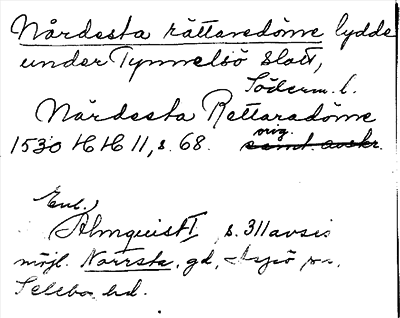 Närdesta rättaredöme lydde
under Tynnelsö slott,
Söderm. l.
Närdesta Rettaradöme
orig.
1530 HH 11, s. 68. samt. avskr.
Enl.
Almquist I s. 311 avses
möjl. Norrsta, gd, sn,
Selebo hd.